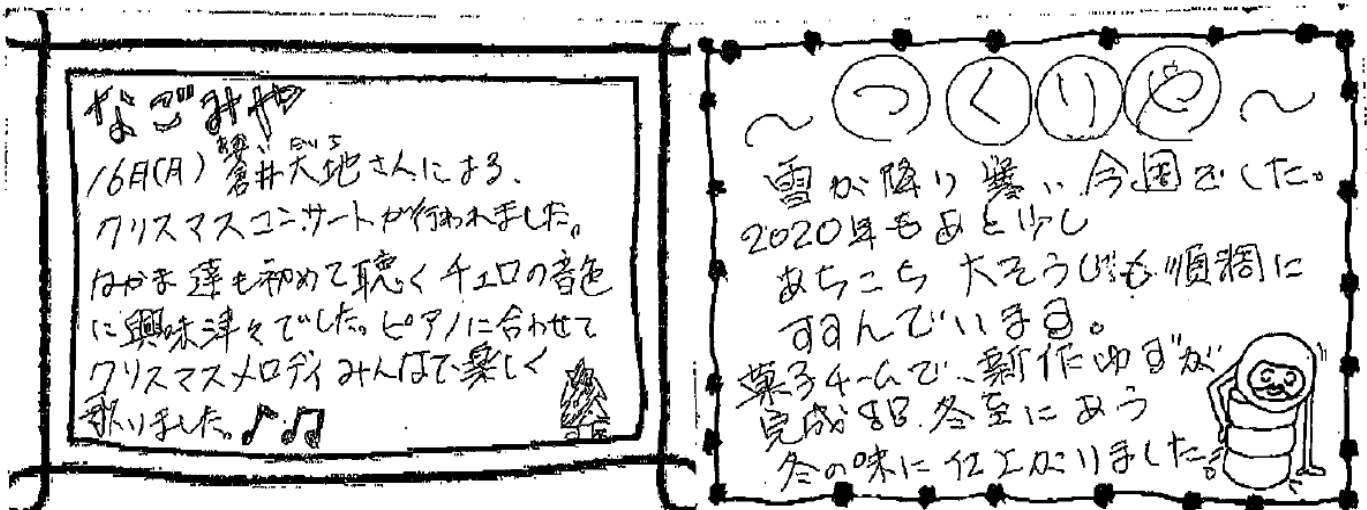 なごみや
16日(月) 倉井大地さんによる、
クリスマスコンサートが行われました。
なかま達も初めて聴くチェロの音色
に興味津々でした。ピアノに合わせて
クリスマスメロディみんなで楽しく
歌いました。♪♫
～つくりや～
雪が降り寒い今週でした。
2020年もあと少し
あちこち大そうじも順調に
すすんでいます。
菓子チームで、新作ゆずが
完成 冬至にあう
冬の味に仕上がりました。